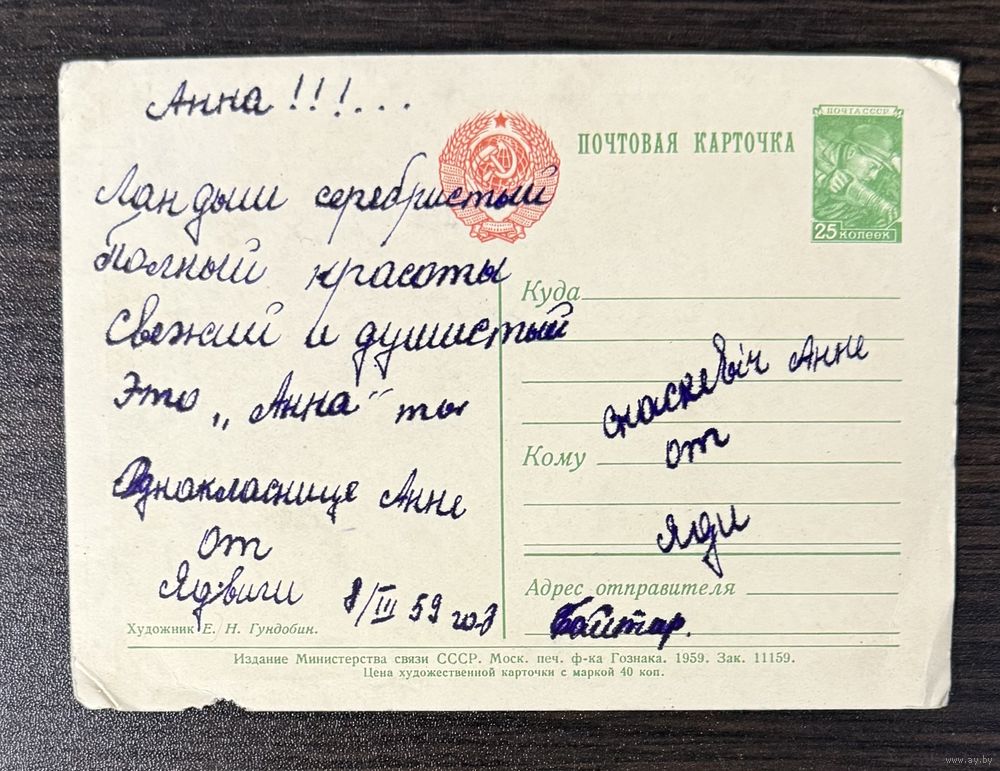 Анна!!!...
ПОЧТОВАЯ КАРТОЧКА
ПОЧТА СССР
25 КОПЕЕК
Ландыш серебристый
Полный красоты
Свежий и душистый
Это „Анна" ты
Однокласнице Анне
от
Ядвиги 8/III 59 год
Художник Е. Н. Гундобин.
Куда
Анне
от
Кому
Яди
Адрес отправителя
Издание Министерства связи СССР. Моск. печ. ф-ка Гознака. 1959. Зак. 11159.
Цена художественной карточки с маркой 40 коп.
www.ay.by